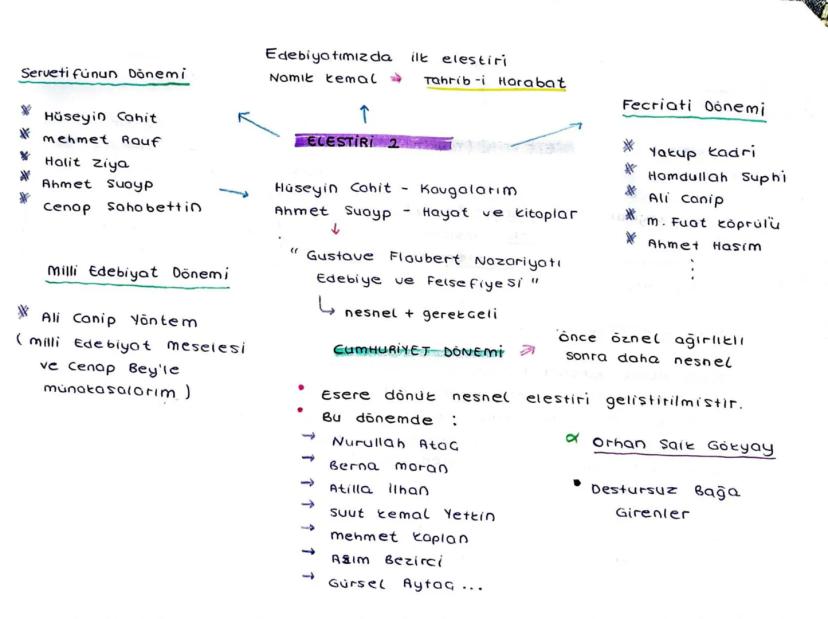 Edebiyatımızda ilk eleştiri
Namık Kemal → Tahrib-i Harabat
ELEŞTİRİ 2
Servetifünun Dönemi
* Hüseyin Cahit
* Mehmet Rauf
* Halit Ziya
* Ahmet Şuayp
* Cenap Şahabettin
Fecriati Dönemi
* Yakup Kadri
* Hamdullah Suphi
* Ali Canip
* M. Fuat Köprülü
* Ahmet Haşim
Hüseyin Cahit - Kavgalarım
Ahmet Şuayp - Hayat ve Kitaplar
" Gustave Flaubert Nazariyatı
Edebiye ve Felsefiyesi "
nesnel + gerekçeli
Milli Edebiyat Dönemi
* Ali Canip Yöntem
( Milli Edebiyat Meselesi
ve Cenap Bey'le
münakaşalarım )
CUMHURİYET DÖNEMİ → önce öznel ağırlıklı
sonra daha nesnel
• Esere dönük nesnel eleştiri geliştirilmiştir.
• Bu dönemde :
→ Nurullah Ataç
→ Berna Moran
→ Atilla İlhan
→ Suut Kemal Yetkin
→ Mehmet Kaplan
→ Asım Bezirci
→ Gürsel Aytaç ...
Orhan Şaik Gökyay
• Destursuz Bağa
Girenler